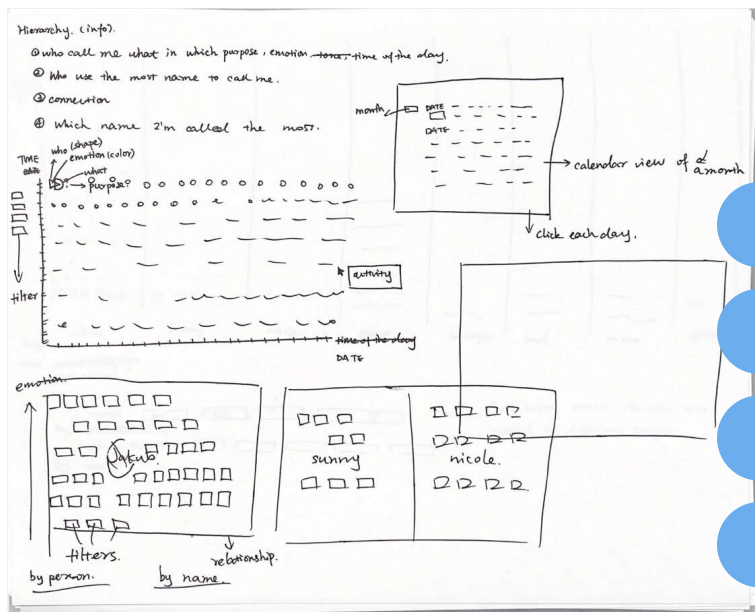 Hierarchy. (info).
① who call me what in which purpose, emotion tone, time of the day.
② Who use the most name to call me.
③ connection
④ which name I'm called the most.
who (shape)
emotion (color)
what
purpose?
TIME
DATE
filter
activity
time of the day
DATE
month
DATE
DATE
calendar view of a month
click each day.
emotion.
filters.
relationship.
by person.
by name.
sunny
nicole.